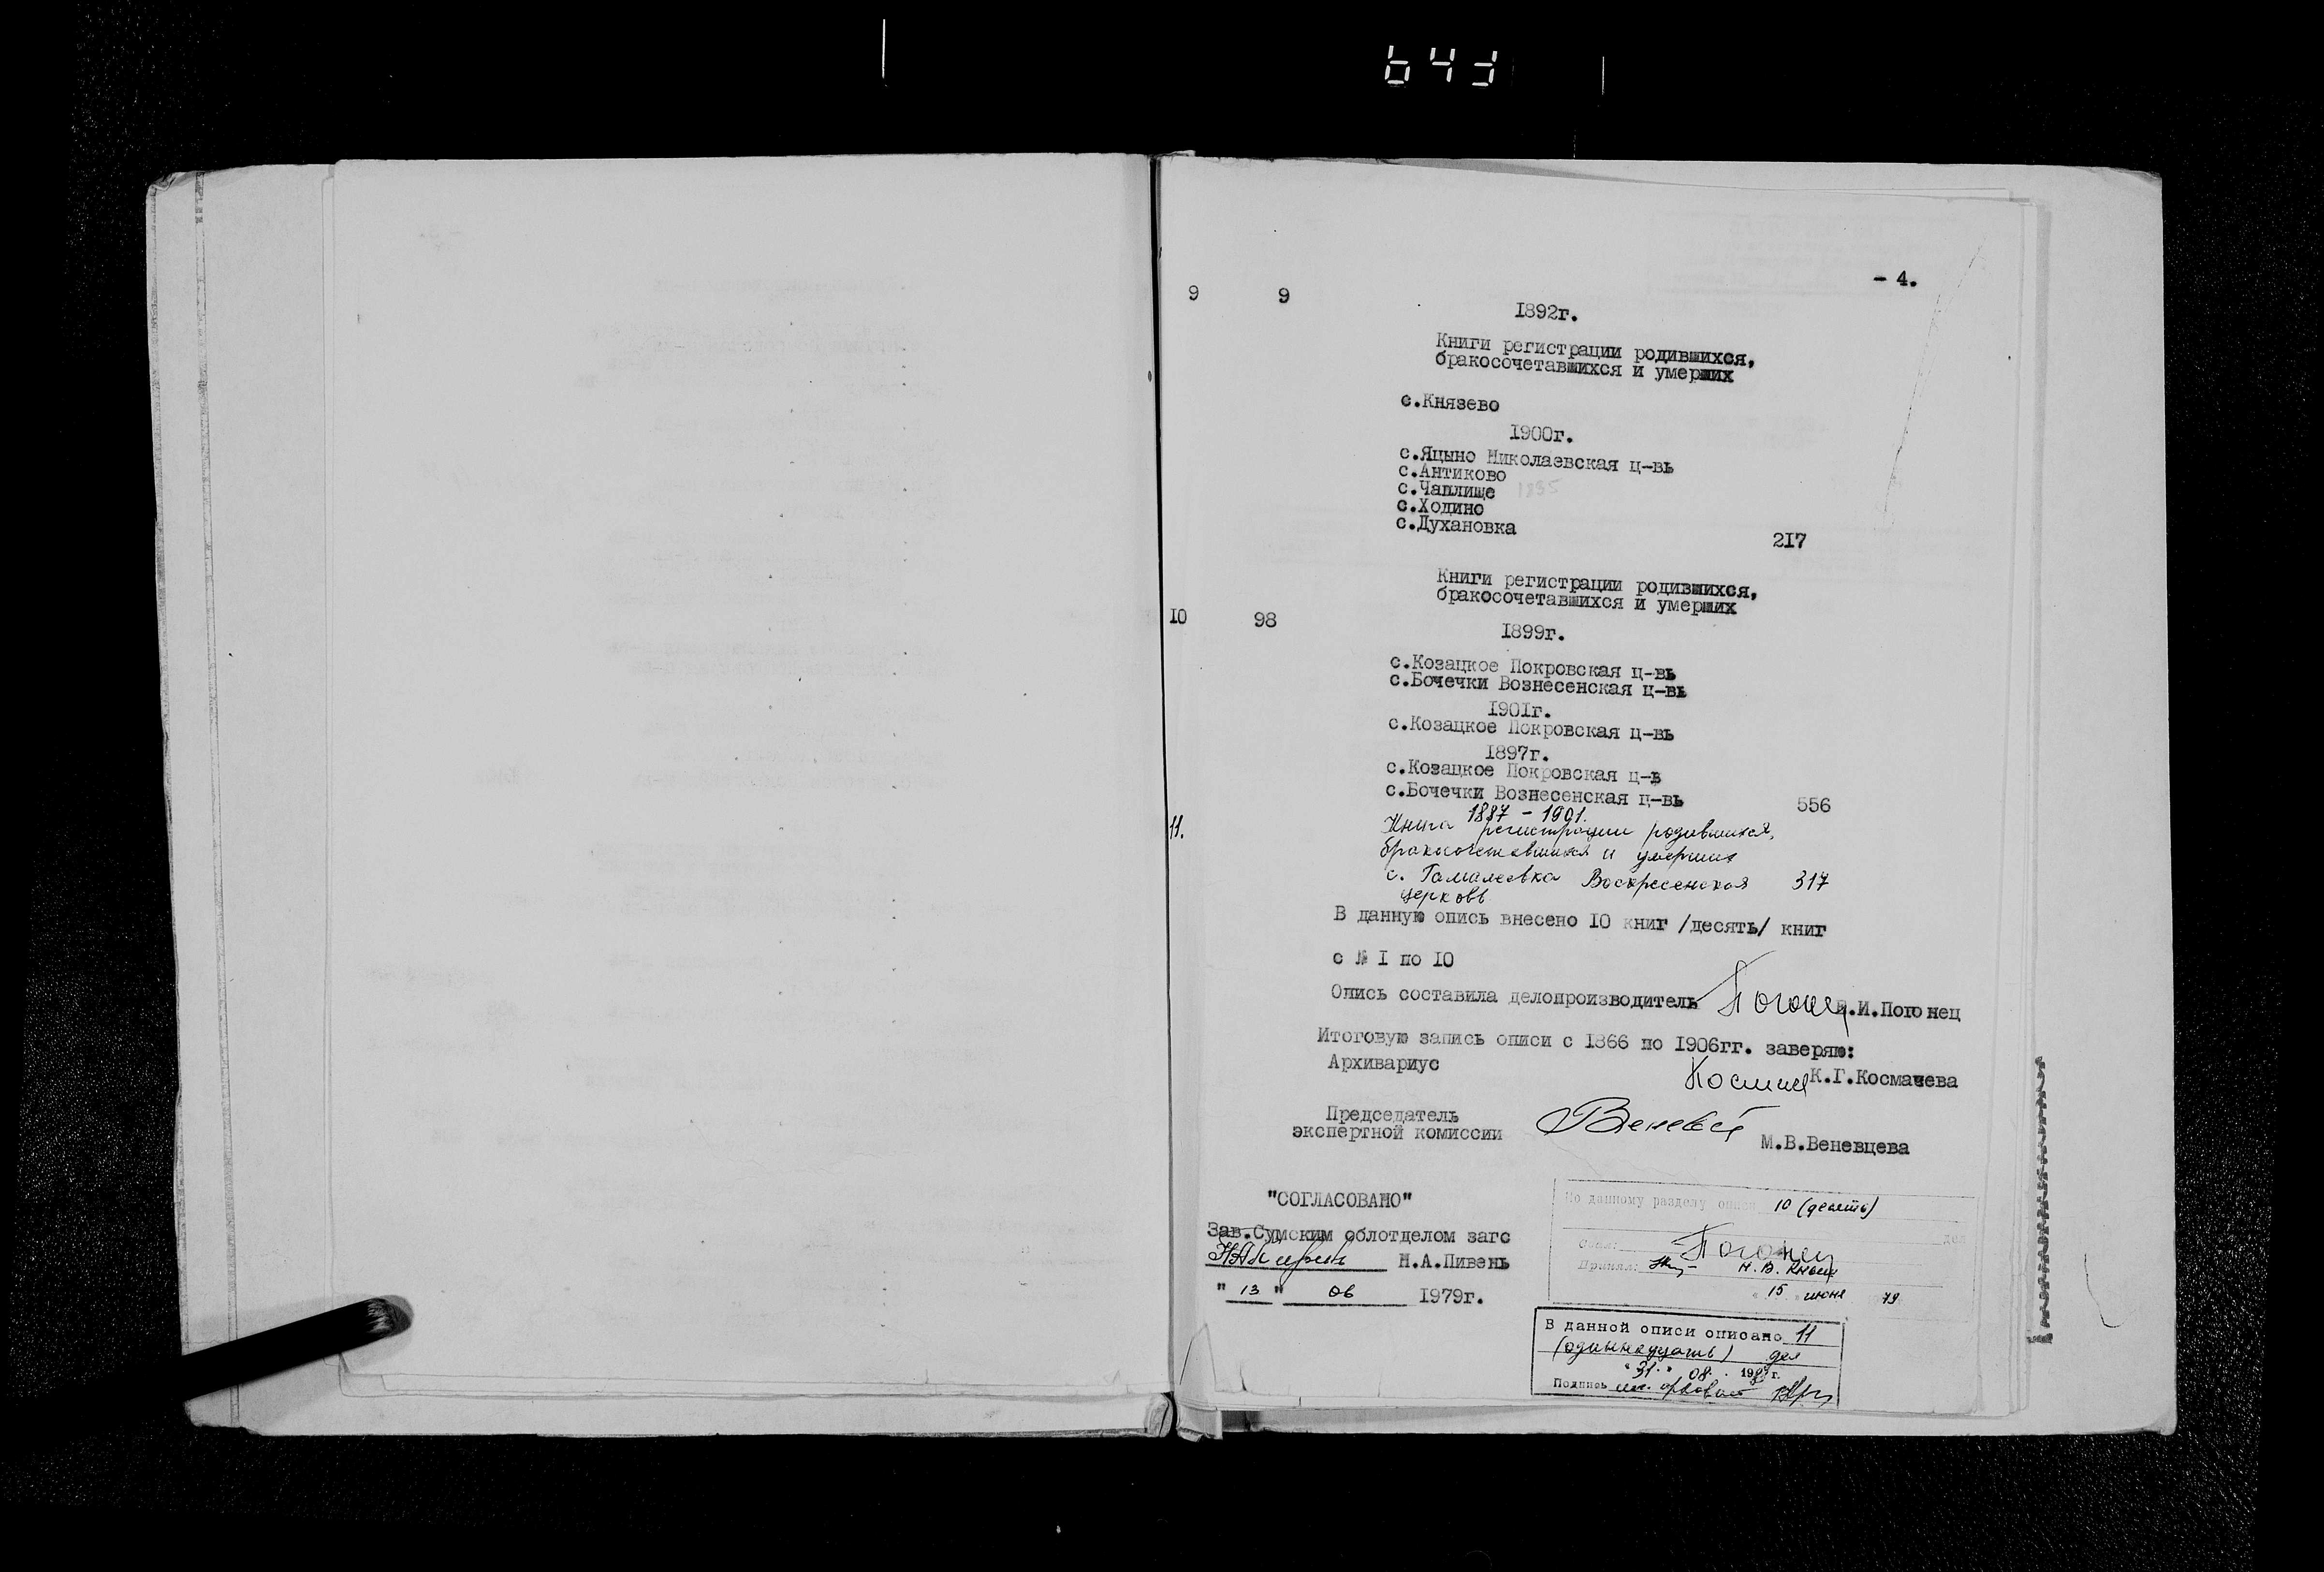 - 4.
9 9
1892г.
Книги регистрации родившихся,
бракосочетавшихся и умерших
с.Князево
1900г.
с.Яцыно Николаевская ц-вь
с.Антиково
с.Чаплище 1895
с.Ходино
с.Духановка
217
Книги регистрации родившихся,
бракосочетавшихся и умерших
10 98
1899г.
с.Козацкое Покровская ц-вь
с.Бочечки Вознесенская ц-вь
1901г.
с.Козацкое Покровская ц-вь
1897г.
с.Козацкое Покровская ц-в
с.Бочечки Вознесенская ц-вь 556
1887 - 1901.
11. Книга регистрации родившихся,
бракосочетавшихся и умерших
с. Гамалеевка Воскресенская 317
церковь
В данную опись внесено 10 книг /десять/ книг
с № 1 по 10
Опись составила делопроизводитель Погонец .И.Погонец
Итоговую запись описи с 1866 по 1906гг. заверяю:
Архивариус К.Г.Космачева
Председатель
экспертной комиссии М.В.Веневцева
"СОГЛАСОВАНО"
Зав.Сумским облотделом загс
Н.А.Пивень
" 13 " 06 1979г.
По данному разделу описи 10 (десять)
дел
Сдал: Погонец
Принял: Н.В.
" 15 " июня 79
В данной описи описано 11
(одиннадцать) дел
" 31 " 08. 198 г.
Подпись